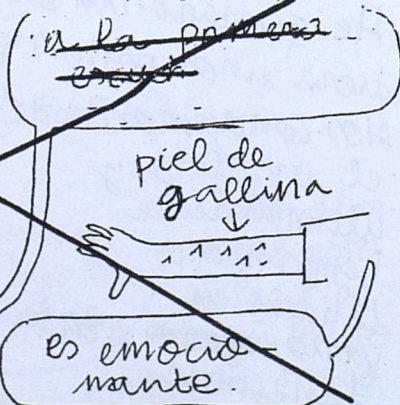 a la primera
piel de
gallina
es emocio-
nante.